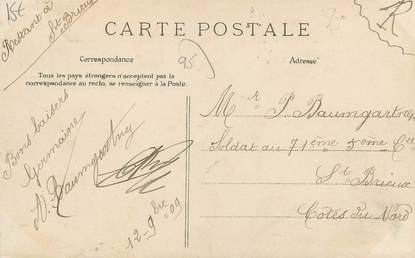 15€
Restant à
St Brieux
CARTE POSTALE
R
Correspondance
95
Adresse
Tous les pays étrangers n'acceptent pas la
correspondance au recto, se renseigner à la Poste.
Bons baisers
Germaine
Baumgartny
12-9bre 09
Mr P. Baumgartny
Soldat au 71ème 5ème Cie
St Brieux
Côtes du Nord